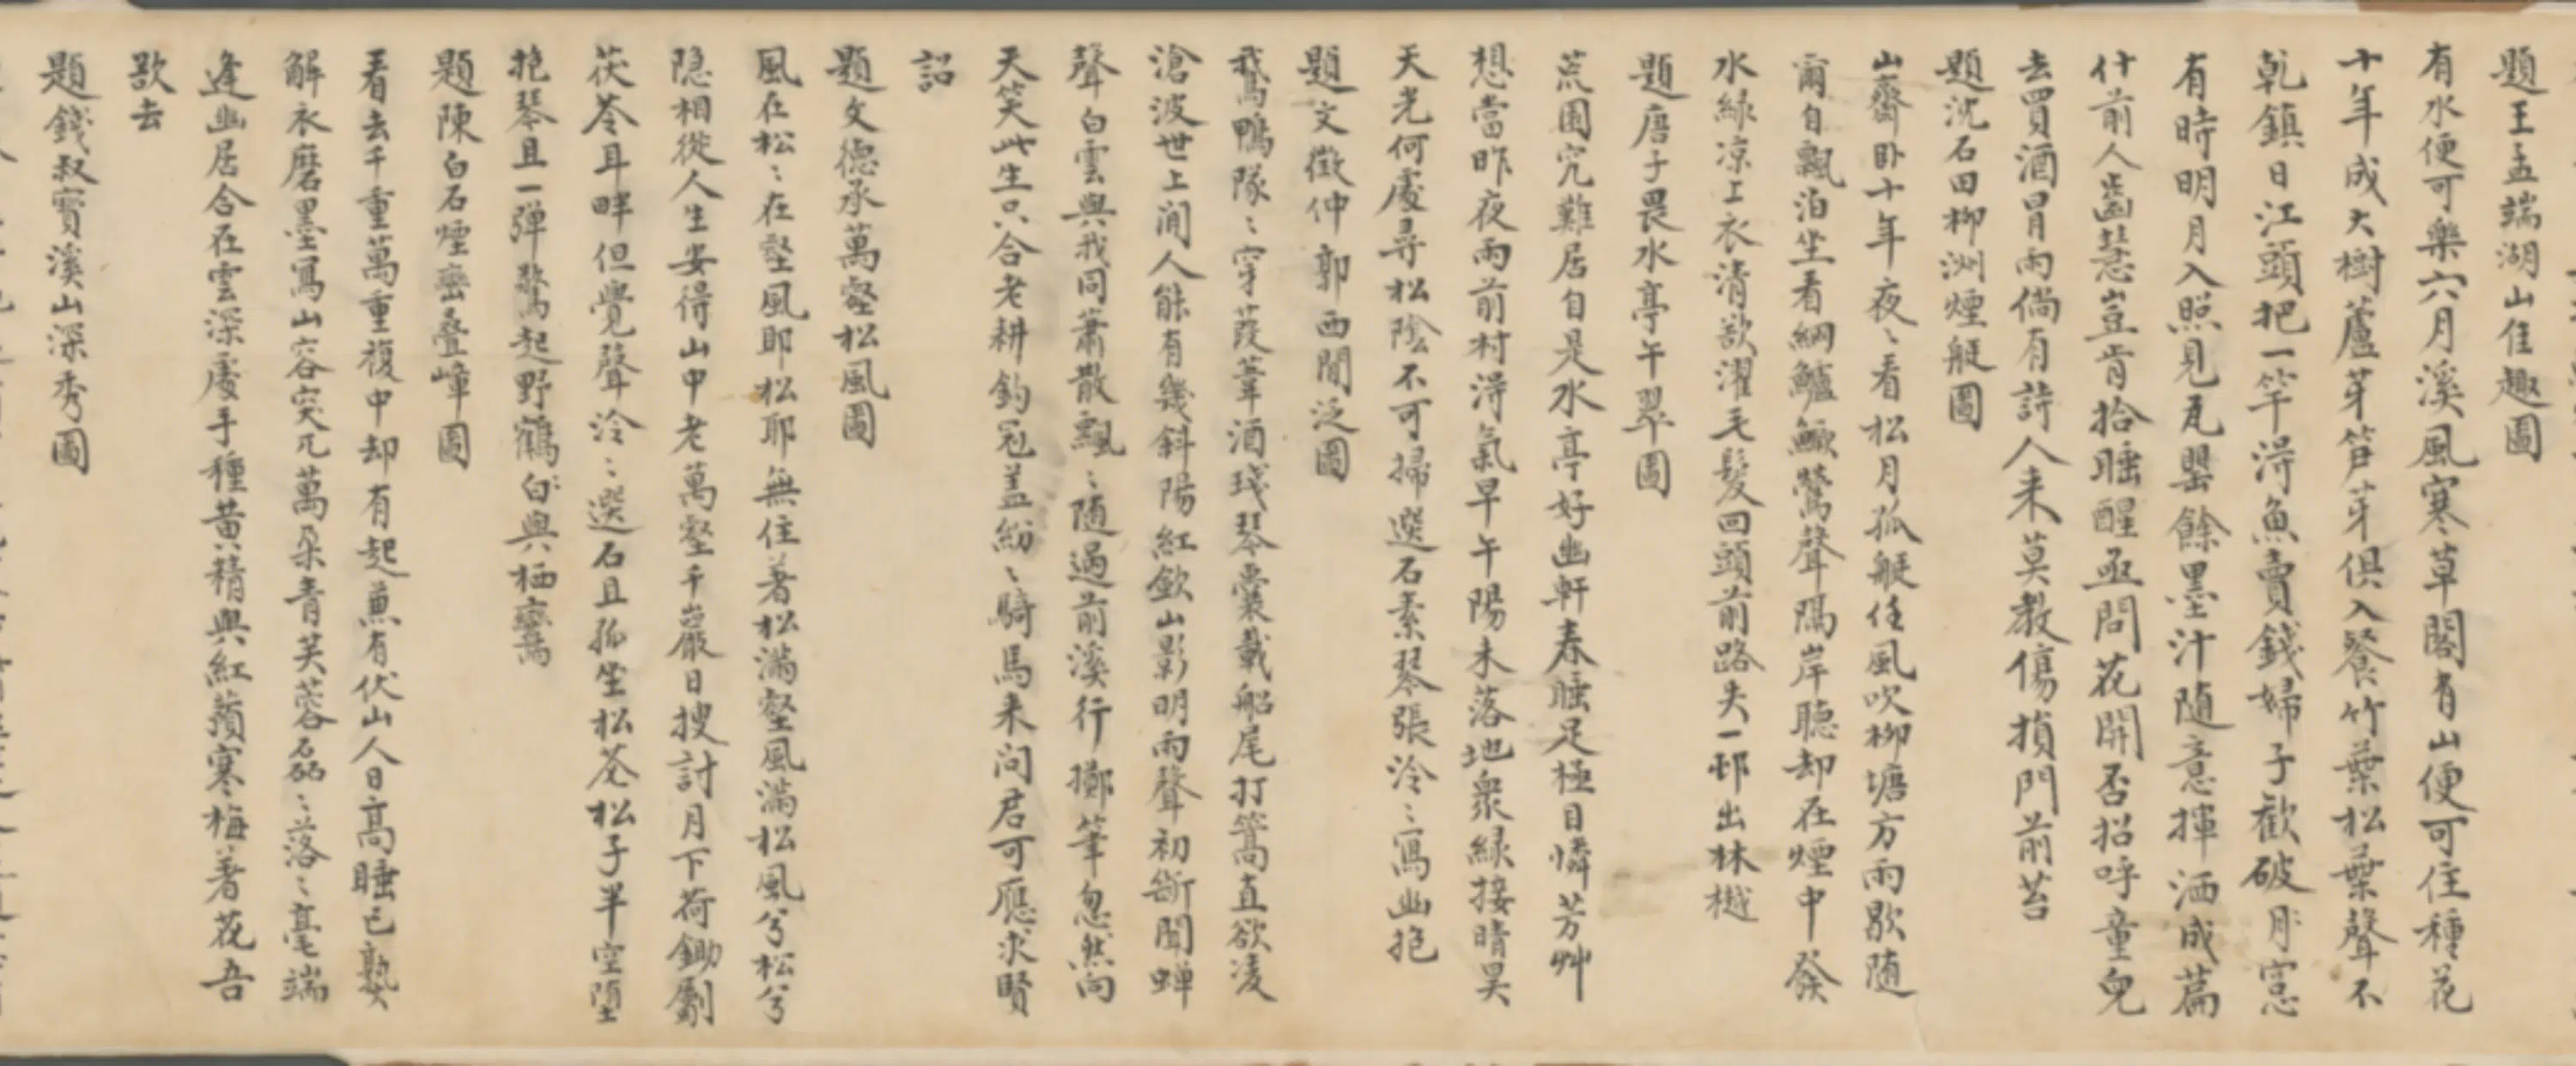 題王孟端湖山佳趣圖
有水便可樂六月溪風寒草閣有山便可住種花
十年成大樹蘆芽笋芽俱入餐竹葉松葉聲不
乾鎮日江頭把一竿得魚賣錢婦子歡破月窓
有時明月入照見瓦罌餘墨汁随意揮洒成篇
什前人齒慧豈肯拾睡醒亟問花開否招呼童兒
去買酒冒雨倘有詩人来莫教傷損門前苔
題沈石田柳洲煙艇圖
山齋卧十年夜〻看松月孤艇任風吹柳塘方雨歇随
爾自飄泊坐看綱鱸鱖鶯聲隔岸聽却在煙中發
水緑凉上衣清欲濯毛髮回頭前路失一邨出林樾
題唐子畏水亭午翠圖
荒園宂難居自是水亭好幽軒春睡足極目憐芳艸
想當昨夜雨前村得氣早午陽未落地衆緑接晴昊
天光何處尋松陰不可掃選石素琴張泠〻寫幽抱
題文徵仲郭西閒泛圖
鵞鴨隊〻穿葭葦酒琖琴囊載船尾打篙直欲凌
滄波世上閒人能有幾斜陽紅斂山影明雨聲初斷聞蝉
聲白雲與我同蕭散飄〻随過前溪行擲筆忽然向
天笑此生只合老耕釣冠盖紛〻騎馬来问君可應求賢
詔
題文德承萬壑松風圖
風在松〻在壑風耶松耶無住著松滿壑風滿松風兮松兮
隐相從人生安得山中老萬壑千巖日搜討月下荷鋤劚
茯苓耳畔但覺聲泠〻選石且孤坐松花松子半空墮
抱琴且一彈驚起野鶴白與栖鸞
題陳白石煙巒疊嶂圖
看去千重萬重複中却有起兼有伏山人日高睡已熟
解衣磨墨寫山容突兀萬朵青芙蓉磊〻落〻毫端
逢幽居合在雲深處手種黄精與紅蘋寒梅著花吾
歌去
題錢叔寶溪山深秀圖